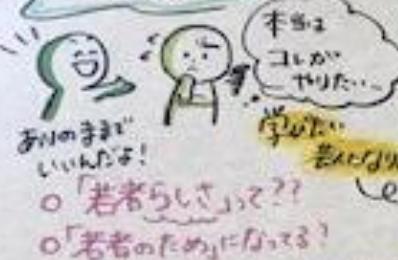 本当は
コレが
やりたい…
ありのままで
いいんだよ!
学びたい
芸人になり
○「若者らしさ」って??
○「若者のため」になってる?